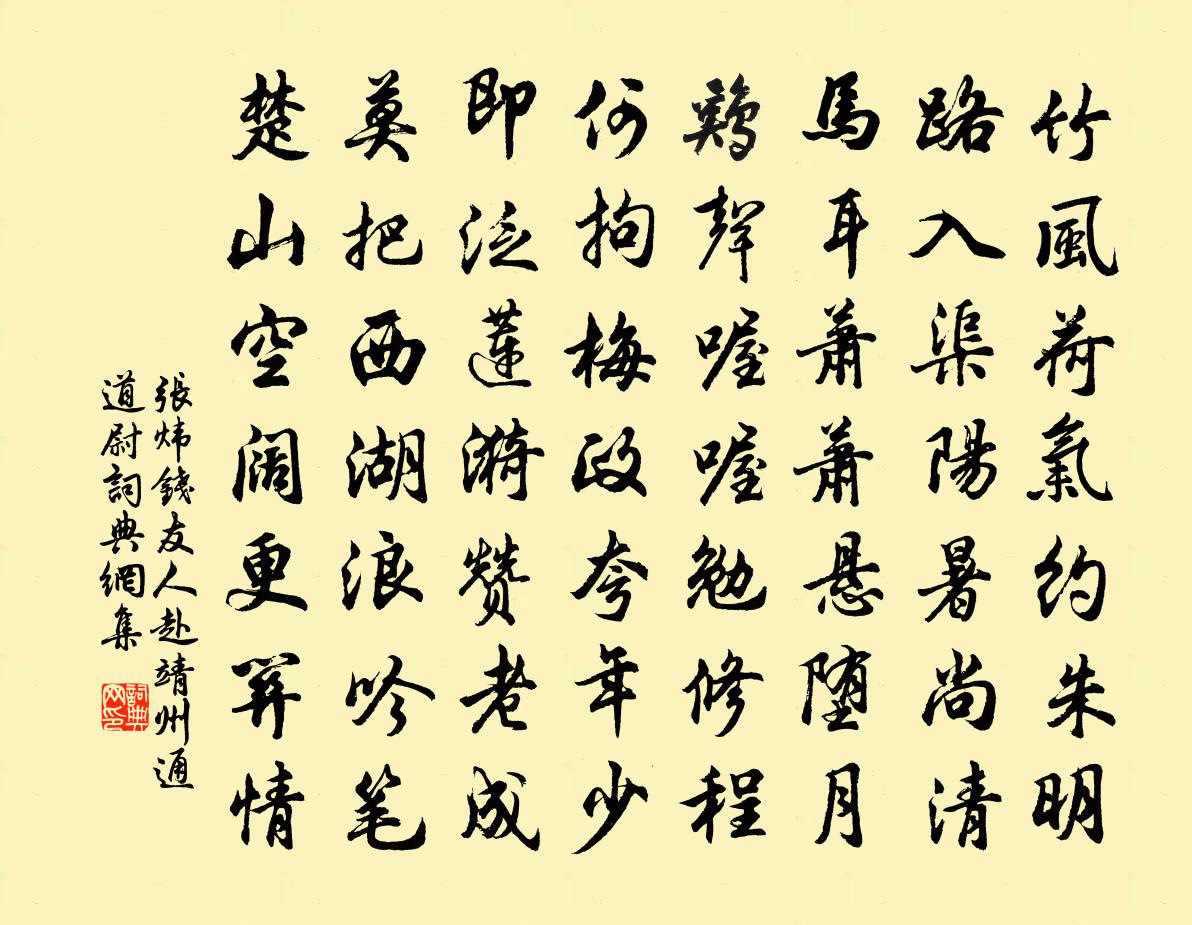 竹風荷氣約朱明
路入渠陽暑尚清
馬耳蕭蕭懸堕月
鷄聲喔喔勉修程
何拘梅政夸年少
即泛蓮漪赞老成
莫把西湖浪吟笔
楚山空阔更關情
張炜錢友人赴靖州通
道尉詞典網集
詞典网印